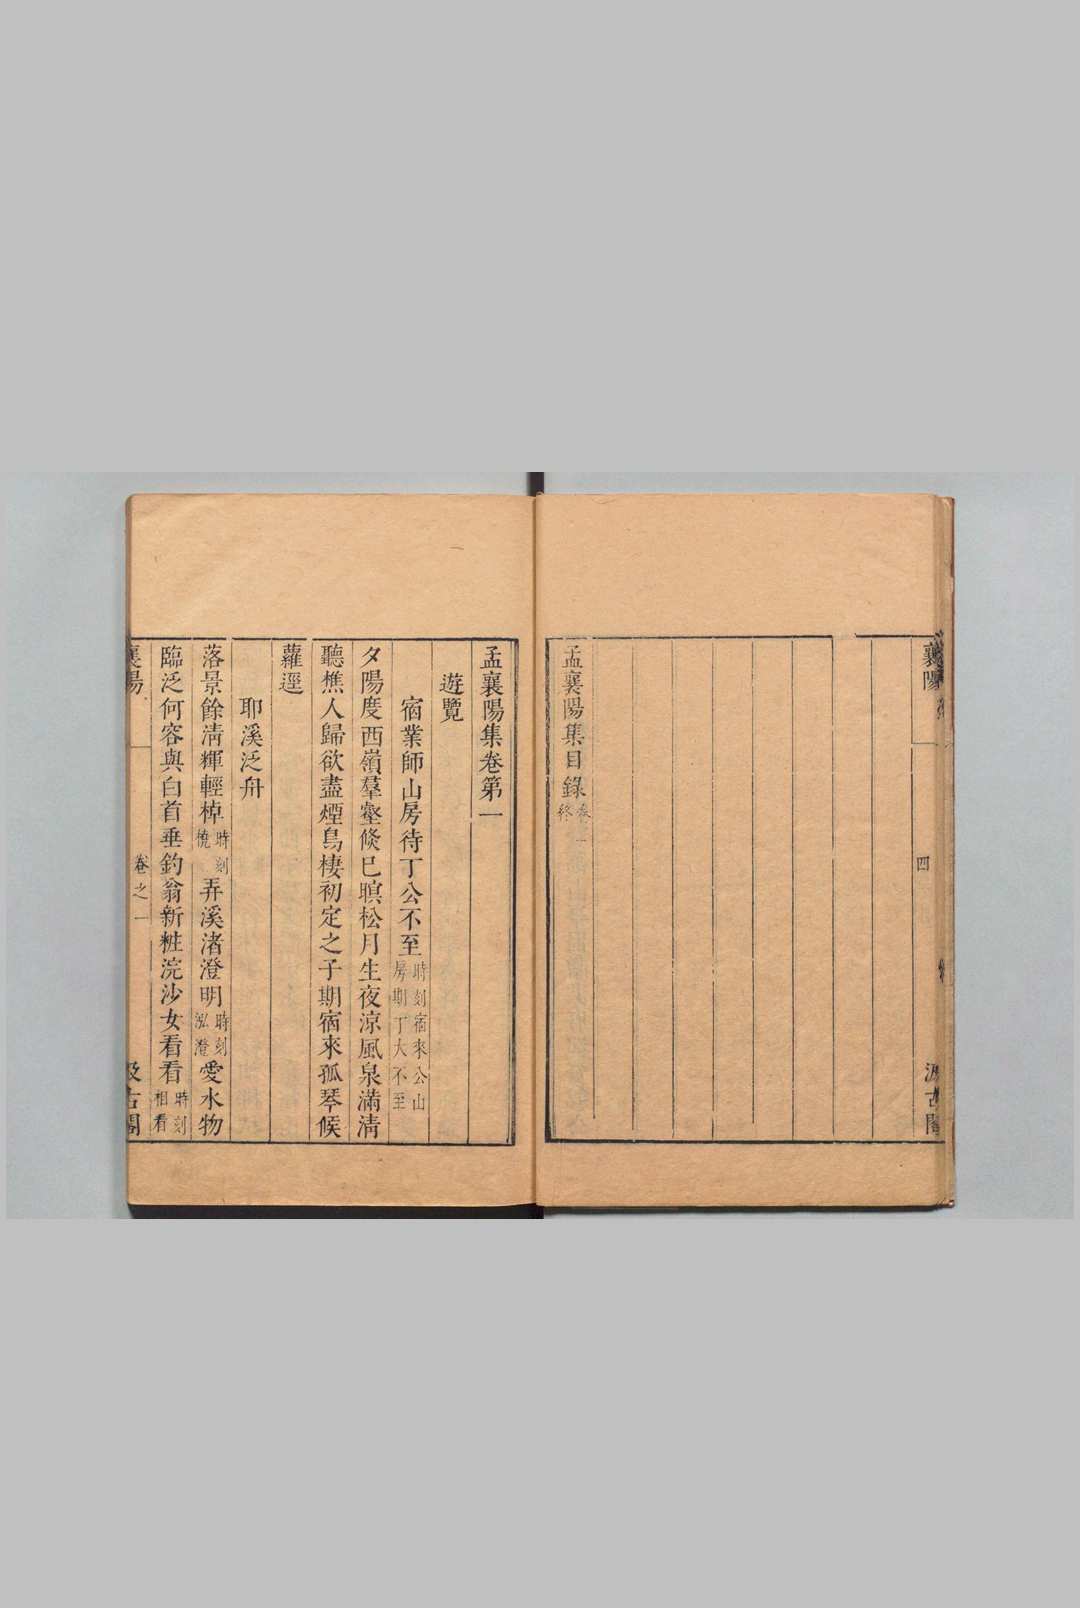 襄陽
四
汲古閣
孟襄陽集目錄
孟襄陽集卷第一
遊覽
宿業師山房待丁公不至時刻宿來公山房期丁大不至
夕陽度西嶺羣壑倏巳暝松月生夜涼風泉滿清
聽樵人歸欲盡煙鳥棲初定之子期宿來孤琴候
蘿逕
耶溪泛舟
落景餘淸輝輕棹時刻橈弄溪渚澄明時刻泓澄愛水物
臨泛何容與白首垂釣翁新粧浣沙女看看時刻相看
襄陽
卷之一
汲古閣